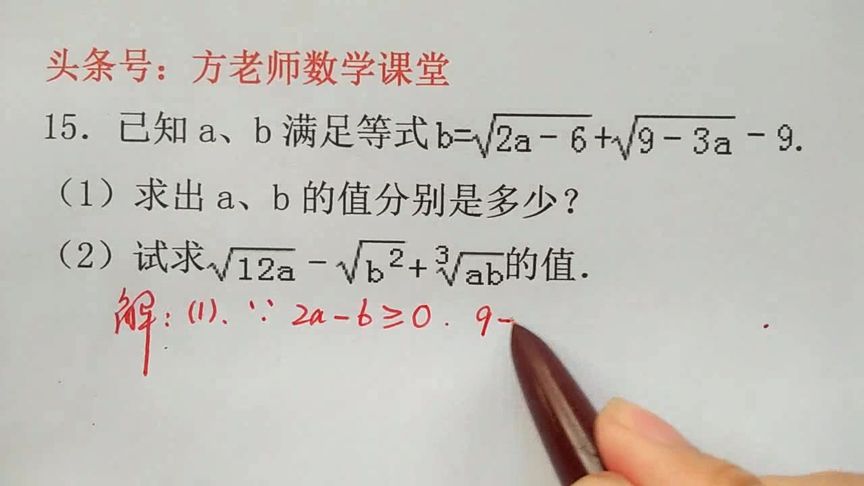 头条号：方老师数学课堂
15. 已知 a、b 满足等式 b=√(2a-6)+√(9-3a)-9.
（1）求出 a、b 的值分别是多少？
（2）试求√(12a)-√(b²)+∛(ab)的值.
解：(1). ∵ 2a-6≥0. 9-